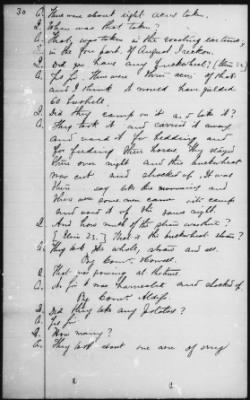 30
A. There were about eight acres taken.
Q. When was that taken?
A. That was taken in the roasting ear time,
in the fore part of August I reckon.
Q. Did you have any buckwheat? (Item 23.)
A. Yes sir. There were three acres of that
and I think it would have yielded
60 bushels.
Q. Did they camp on it and take it?
A. They took it and carried it away
and used it for bedding and
for feeding their horses. They stayed
there over night and this buckwheat
was cut and shocked up. It was
there say like this morning and
there were some men came into camp
and used it up the same night.
Q. And how much of the straw was there?
[Item 23.] That is the buckwheat straw?
A. They took the whole, straw and all.
By Comr. Howell.
Q. That was growing at the time.
A. No sir it was harvested and shocked up.
By Comr. Aldis.
Q. Did they take any potatoes?
A. Yes sir.
Q. How many?
A. They took about one acre of my